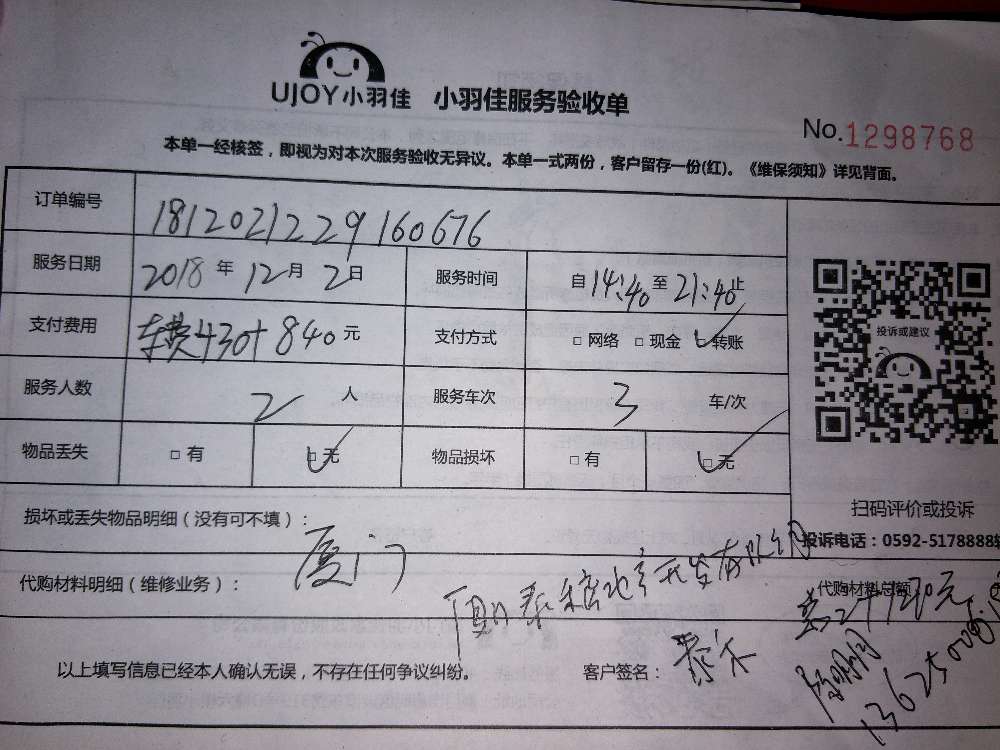 UJOY小羽佳 小羽佳服务验收单
No.1298768
本单一经核签，即视为对本次服务验收无异议。本单一式两份，客户留存一份(红)。《维保须知》详见背面。
订单编号 181202122９160676
服务日期 2018年12月2日 服务时间 自14:40至21:40止
支付费用 车费430+840元 支付方式 □网络 □现金 □转账
服务人数 2人 服务车次 3车/次
物品丢失 □有 □无 物品损坏 □有 □无
投诉或建议
扫码评价或投诉
投诉电话：0592-5178888
损坏或丢失物品明细（没有可不填）：
厦门
代购材料明细（维修业务）： 代购材料总额
以上填写信息已经本人确认无误，不存在任何争议纠纷。 客户签名：